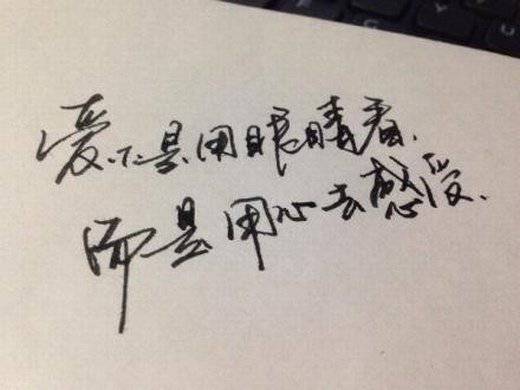 爱不是用眼睛看，
而是用心去感受.